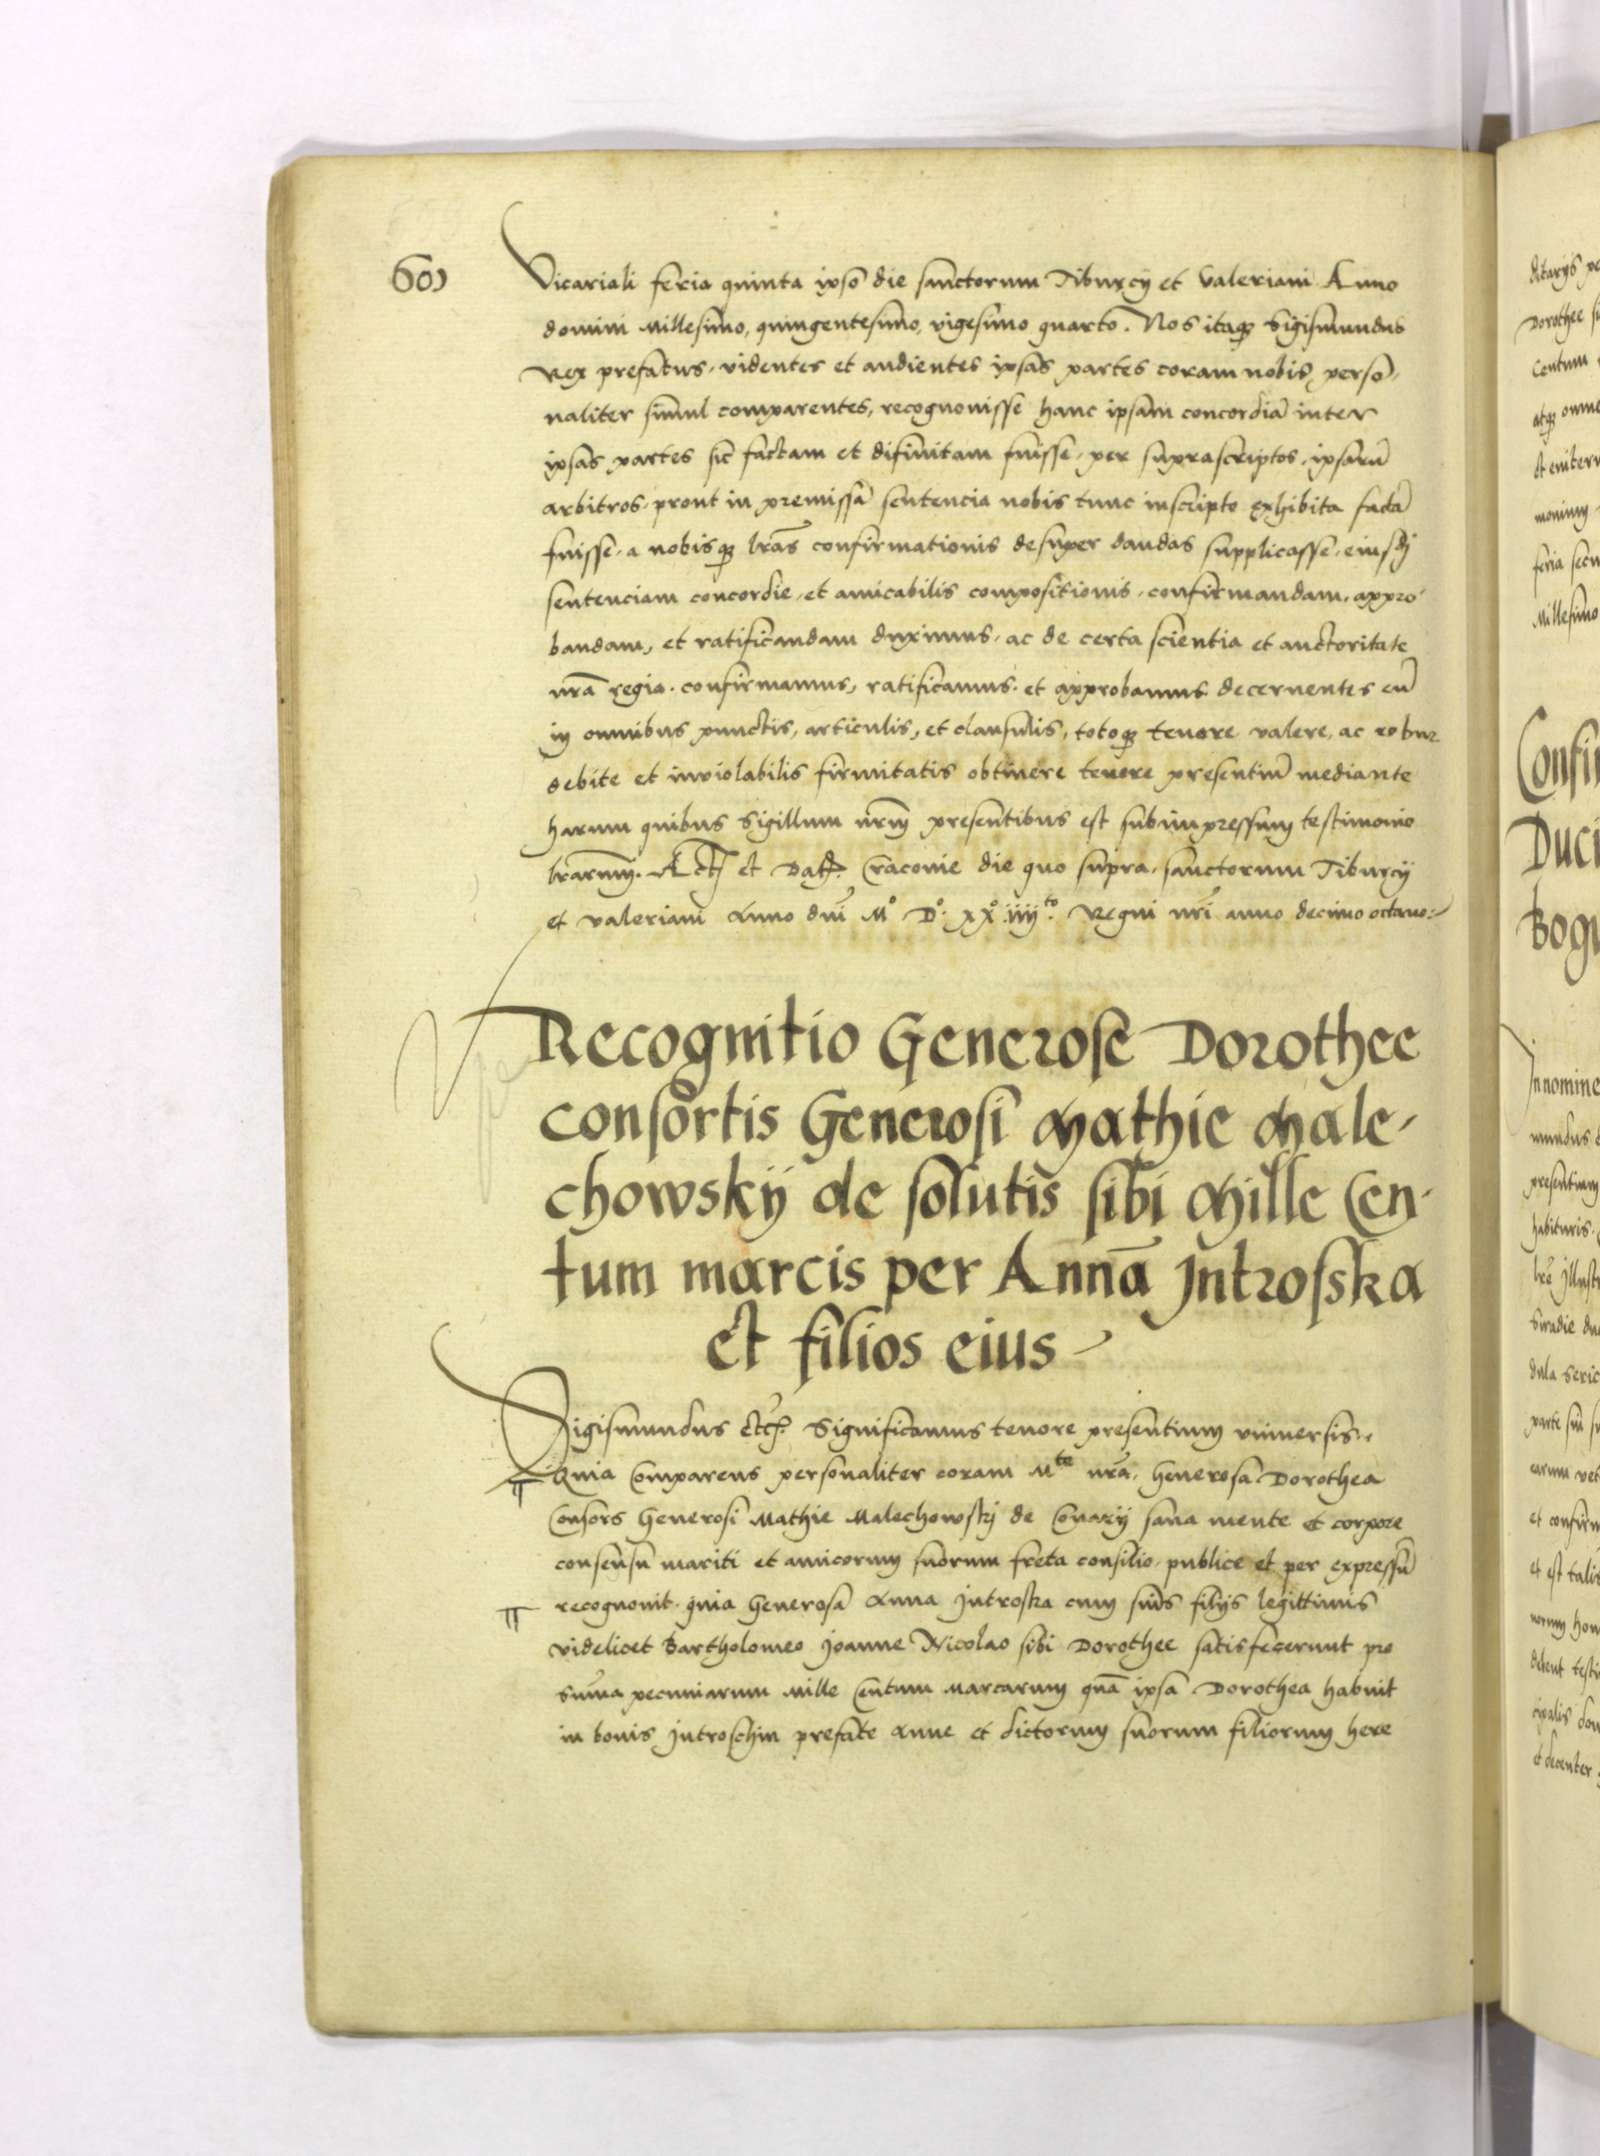 601
Vicariali feria quinta ipso die sanctorum Tiburcy et Valeriani Anno
domini Millesimo, quingentesimo, vigesimo quarto. Nos itaqꝫ Sigismundus
Rex prefatus, videntes et audientes ipsas partes coram nobis perso-
naliter simul comparentes, recognovisse hanc ipsam concordiā inter
ipsas partes sic factam et difinitam fuisse, per suprascriptos, ipsarū
arbitros, prout in premissa sentencia nobis tunc inscripto exhibita factā
fuisse, a nobisqꝫ lrās confirmationis desuper dandas supplicasse, eiusdj
sentenciam concordie, et amicabilis compositionis, confirmandam, appro-
bandam, et ratificandam duximus, ac de certa scientia et auctoritate
nrā regia. confirmamus, ratificamus. et approbamus. decernentes eā
in omnibus punctis, articulis, et clausulis, totoqꝫ tenore valere, ac robur
debite et inviolabilis firmitatis obtinere tenore presentiū mediante
harum quibus Sigillum nrm presentibus est subimpressum testimonio
lrarum. Act et Dat. Cracovie die quo supra, sanctorum Tiburcij
et Valeriani Anno dni Mº Dº xxº iiijto. Regni nri anno decimo octavo.
Recognitio Generose Dorothee
consortis Generosi Mathie Male-
chowskij de solutis sibi Mille Cen-
tum marcis per Annā Jntrosska
et filios eius
Sigismundus etc. Significamus tenore presentium universis.
Quia Comparens personaliter coram Mte nrā, Generosa Dorothea
Consors Generosi Mathie Malechowskj de Conarij sana mente et corpore
consensu mariti et amicorum suorum freta consilio, publice et per expressū
recognovit. quia Generosa Anna Jntroska cum suis filijs legittimis
videlicet Bartholomeo Joanne Nicolao sibi Dorothee satisfecerunt pro
suma pecuniarum Mille Centum Marcarum quā ipsa Dorothea habuit
in bonis Jntroschin prefate Anne et dictorum suorum filiorum here